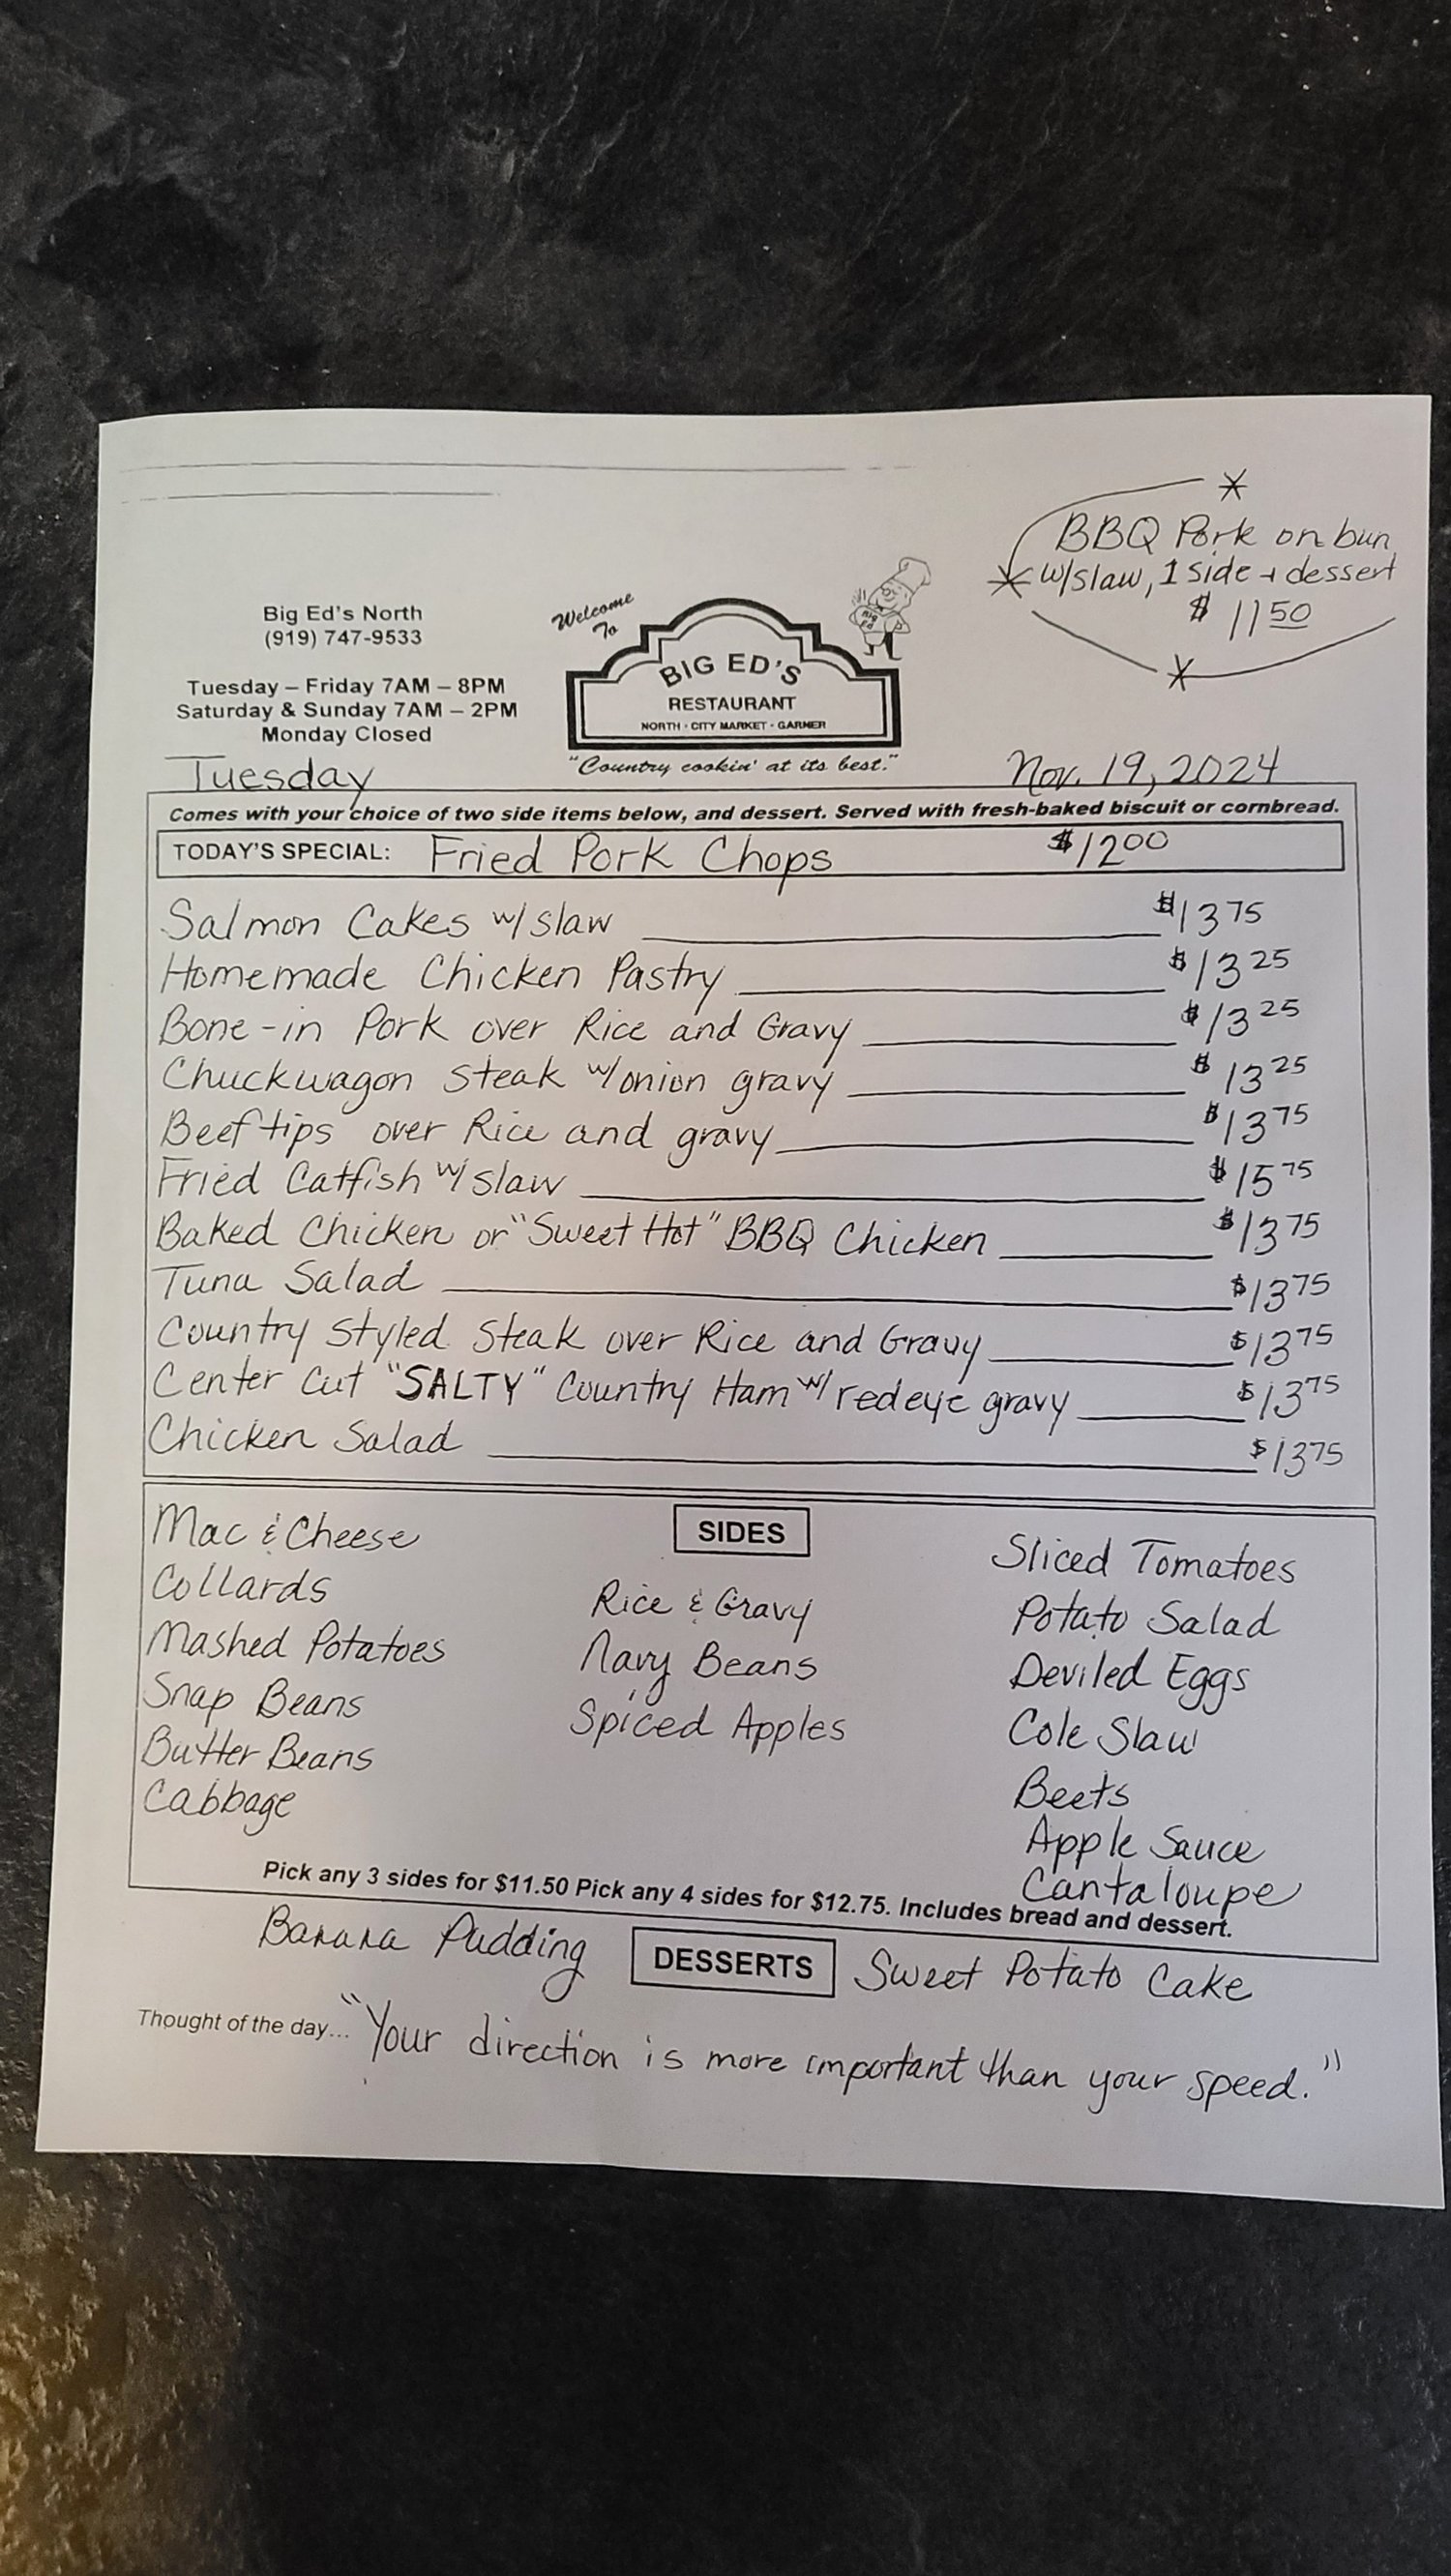 *
BBQ Pork on bun
* w/slaw, 1 side + dessert
$ 11 50
*
Big Ed's North
(919) 747-9533
Tuesday – Friday 7AM – 8PM
Saturday & Sunday 7AM – 2PM
Monday Closed
Welcome
To
BIG ED'S
RESTAURANT
NORTH · CITY MARKET · GARNER
"Country cookin' at its best."
BIG ED
Tuesday Nov. 19, 2024
Comes with your choice of two side items below, and dessert. Served with fresh-baked biscuit or cornbread.
TODAY'S SPECIAL: Fried Pork Chops $12 00
Salmon Cakes w/ slaw $13 75
Homemade Chicken Pastry $13 25
Bone-in Pork over Rice and Gravy $13 25
Chuckwagon steak w/onion gravy $13 25
Beef tips over Rice and gravy $13 75
Fried Catfish w/ slaw $15 75
Baked Chicken or "Sweet Hot" BBQ Chicken $13 75
Tuna Salad $13 75
Country Styled Steak over Rice and Gravy $13 75
Center Cut "SALTY" Country Ham w/ redeye gravy $13 75
Chicken Salad $13 75
SIDES
Mac & Cheese
Collards
Mashed Potatoes
Snap Beans
Butter Beans
Cabbage
Rice & Gravy
Navy Beans
Spiced Apples
Sliced Tomatoes
Potato Salad
Deviled Eggs
Cole Slaw
Beets
Apple Sauce
Cantaloupe
Pick any 3 sides for $11.50 Pick any 4 sides for $12.75. Includes bread and dessert.
Banana Pudding DESSERTS Sweet Potato Cake
Thought of the day... "Your direction is more important than your speed."